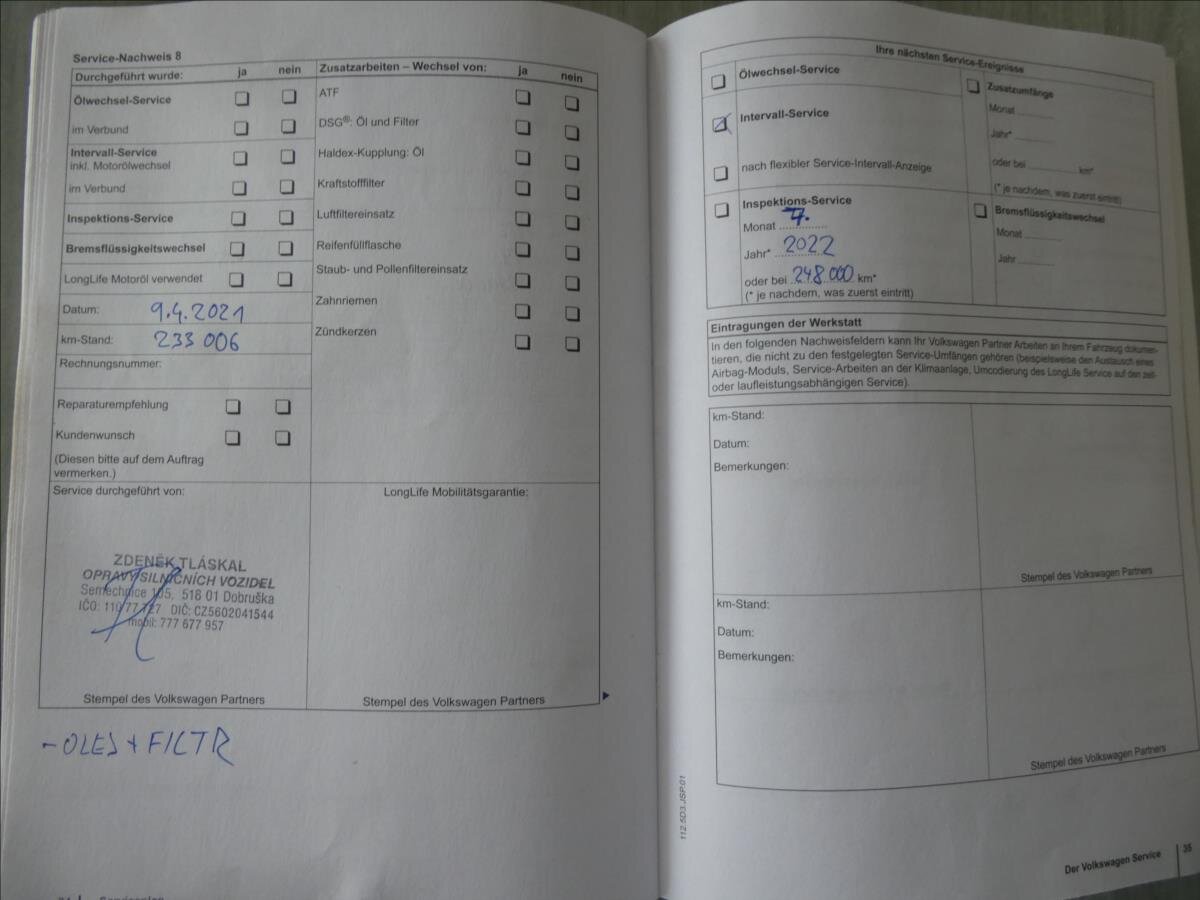 Service-Nachweis 8
Durchgeführt wurde: ja nein
Ölwechsel-Service
im Verbund
Intervall-Service
inkl. Motorölwechsel
im Verbund
Inspektions-Service
Bremsflüssigkeitswechsel
LongLife Motoröl verwendet
Datum: 9.4.2021
km-Stand: 233 006
Rechnungsnummer:
Reparaturempfehlung
Kundenwunsch
(Diesen bitte auf dem Auftrag
vermerken.)
Zusatzarbeiten – Wechsel von: ja nein
ATF
DSG®: Öl und Filter
Haldex-Kupplung: Öl
Kraftstofffilter
Luftfiltereinsatz
Reifenfüllflasche
Staub- und Pollenfiltereinsatz
Zahnriemen
Zündkerzen
Service durchgeführt von:
ZDENĚK TLÁSKAL
OPRAVY SILNIČNÍCH VOZIDEL
Semechnice 105, 518 01 Dobruška
IČO: 110 77 727 DIČ: CZ5602041544
mobil: 777 677 957
Stempel des Volkswagen Partners
LongLife Mobilitätsgarantie:
Stempel des Volkswagen Partners
- OLEJ + FILTR
Ihre nächsten Service-Ereignisse
Ölwechsel-Service
Intervall-Service
nach flexibler Service-Intervall-Anzeige
Inspektions-Service
Monat 7.
Jahr* 2022
oder bei 248 000 km*
(* je nachdem, was zuerst eintritt)
Zusatzumfänge
Monat
Jahr*
oder bei km*
(* je nachdem, was zuerst eintritt)
Bremsflüssigkeitswechsel
Monat
Jahr
Eintragungen der Werkstatt
In den folgenden Nachweisfeldern kann Ihr Volkswagen Partner Arbeiten an Ihrem Fahrzeug dokumen-
tieren, die nicht zu den festgelegten Service-Umfängen gehören (beispielsweise den Austausch eines
Airbag-Moduls, Service-Arbeiten an der Klimaanlage, Umcodierung des LongLife Service auf den zeit-
oder laufleistungsabhängigen Service).
km-Stand:
Datum:
Bemerkungen:
Stempel des Volkswagen Partners
km-Stand:
Datum:
Bemerkungen:
Stempel des Volkswagen Partners
112.5D3.JSP.01
Der Volkswagen Service 35